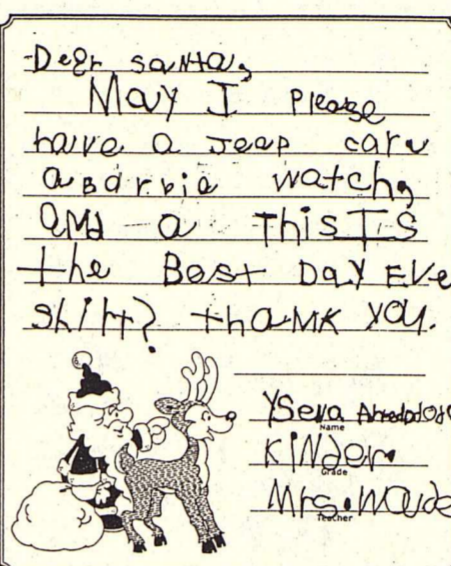 Dear santa,
May I Please
have a Jeep car,
a Barbie watch,
and a This Is
the Best Day Eve
shirt? thank you.
Ysela
Name
Kinder.
Grade
Mrs. Wayde
Teacher